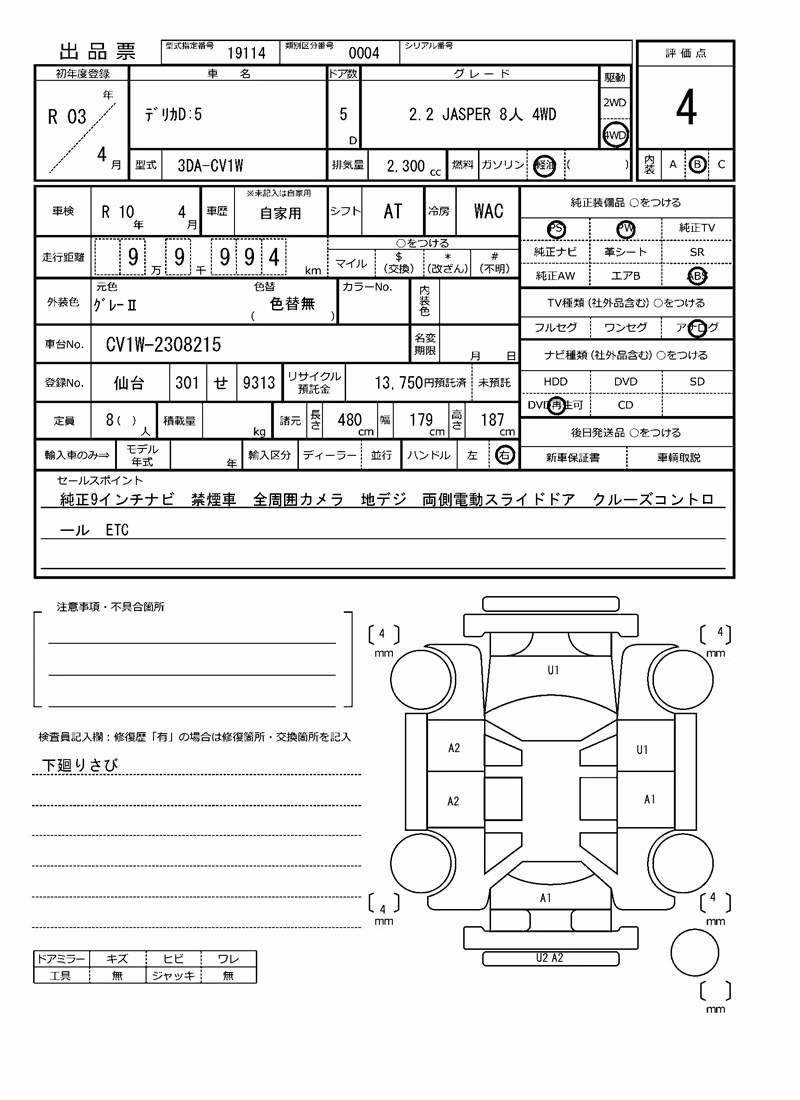 出品票 型式指定番号 19114 類別区分番号 0004 シリアル番号
評価点
4
内装 A B C
初年度登録 車名 ドア数 グレード 駆動
R 03 年 4 月 デリカD:5 5 D 2.2 JASPER 8人 4WD 2WD 4WD
型式 3DA-CV1W 排気量 2,300 cc 燃料 ガソリン 軽油 ( )
車検 R 10 年 4 月 車歴 ※未記入は自家用 自家用 シフト AT 冷房 WAC
走行距離 9 万 9 千 9 9 4 km ○をつける マイル $ (交換) * (改ざん) # (不明)
外装色 元色 グレーⅡ 色替 ( 色替無 ) カラーNo. 内装色
車台No. CV1W-2308215 名変期限 月 日
登録No. 仙台 301 せ 9313 リサイクル預託金 13,750円預託済 未預託
定員 8( ) 人 積載量 kg 諸元 長さ 480 cm 幅 179 cm 高さ 187 cm
輸入車のみ⇒ モデル年式 年 輸入区分 ディーラー 並行 ハンドル 左 右
純正装備品 ○をつける
PS PW 純正TV
純正ナビ 革シート SR
純正AW エアB ABS
TV種類(社外品含む)○をつける
フルセグ ワンセグ アナログ
ナビ種類(社外品含む)○をつける
HDD DVD SD
DVD再生可 CD
後日発送品 ○をつける
新車保証書 車輌取説
セールスポイント
純正9インチナビ 禁煙車 全周囲カメラ 地デジ 両側電動スライドドア クルーズコントロ
ール ETC
注意事項・不具合箇所
検査員記入欄:修復歴「有」の場合は修復箇所・交換箇所を記入
下廻りさび
ドアミラー キズ ヒビ ワレ
工具 無 ジャッキ 無
4 mm
4 mm
U1
A2 U1
A2 A1
A1
4 mm
4 mm
U2 A2
mm